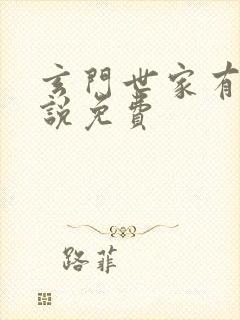 玄門世家有
說免費
路菲